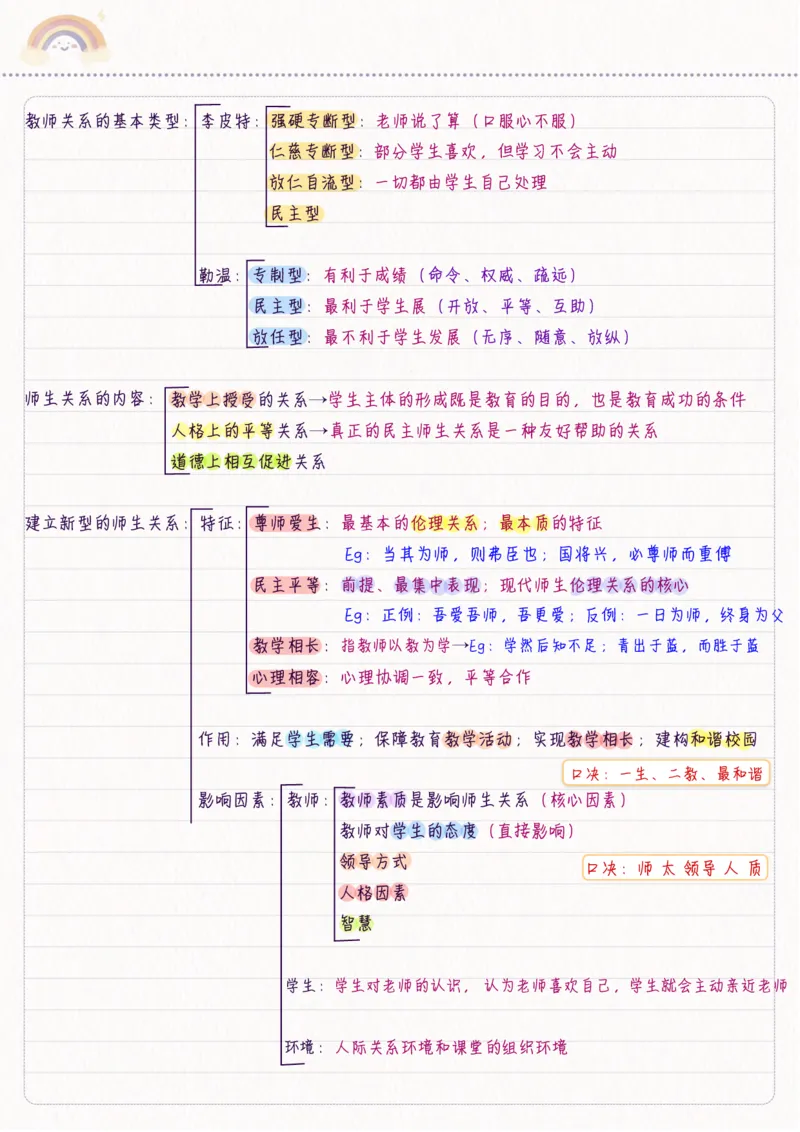 教师关系的基本类型：李皮特：强硬专断型：老师说了算（口服心不服）
仁慈专断型：部分学生喜欢，但学习不会主动
放仁自流型：一切都由学生自己处理
民主型
勒温：专制型：有利于成绩（命令、权威、疏远）
民主型：最利于学生展（开放、平等、互助）
放任型：最不利于学生发展（无序、随意、放纵）
师生关系的内容：教学上授受的关系→学生主体的形成既是教育的目的，也是教育成功的条件
人格上的平等关系→真正的民主师生关系是一种友好帮助的关系
道德上相互促进关系
建立新型的师生关系：特征：尊师爱生：最基本的伦理关系；最本质的特征
Eg：当其为师，则弗臣也；国将兴，必尊师而重傅
民主平等：前提、最集中表现；现代师生伦理关系的核心
Eg：正例：吾爱吾师，吾更爱；反例：一日为师，终身为父
教学相长：指教师以教为学→Eg：学然后知不足；青出于蓝，而胜于蓝
心理相容：心理协调一致，平等合作
作用：满足学生需要；保障教育教学活动；实现教学相长；建构和谐校园
口决：一生、二教、最和谐
影响因素：教师：教师素质是影响师生关系（核心因素）
教师对学生的态度（直接影响）
领导方式
口决：师 太 领导 人 质
人格因素
智慧
学生：学生对老师的认识，认为老师喜欢自己，学生就会主动亲近老师
环境：人际关系环境和课堂的组织环境